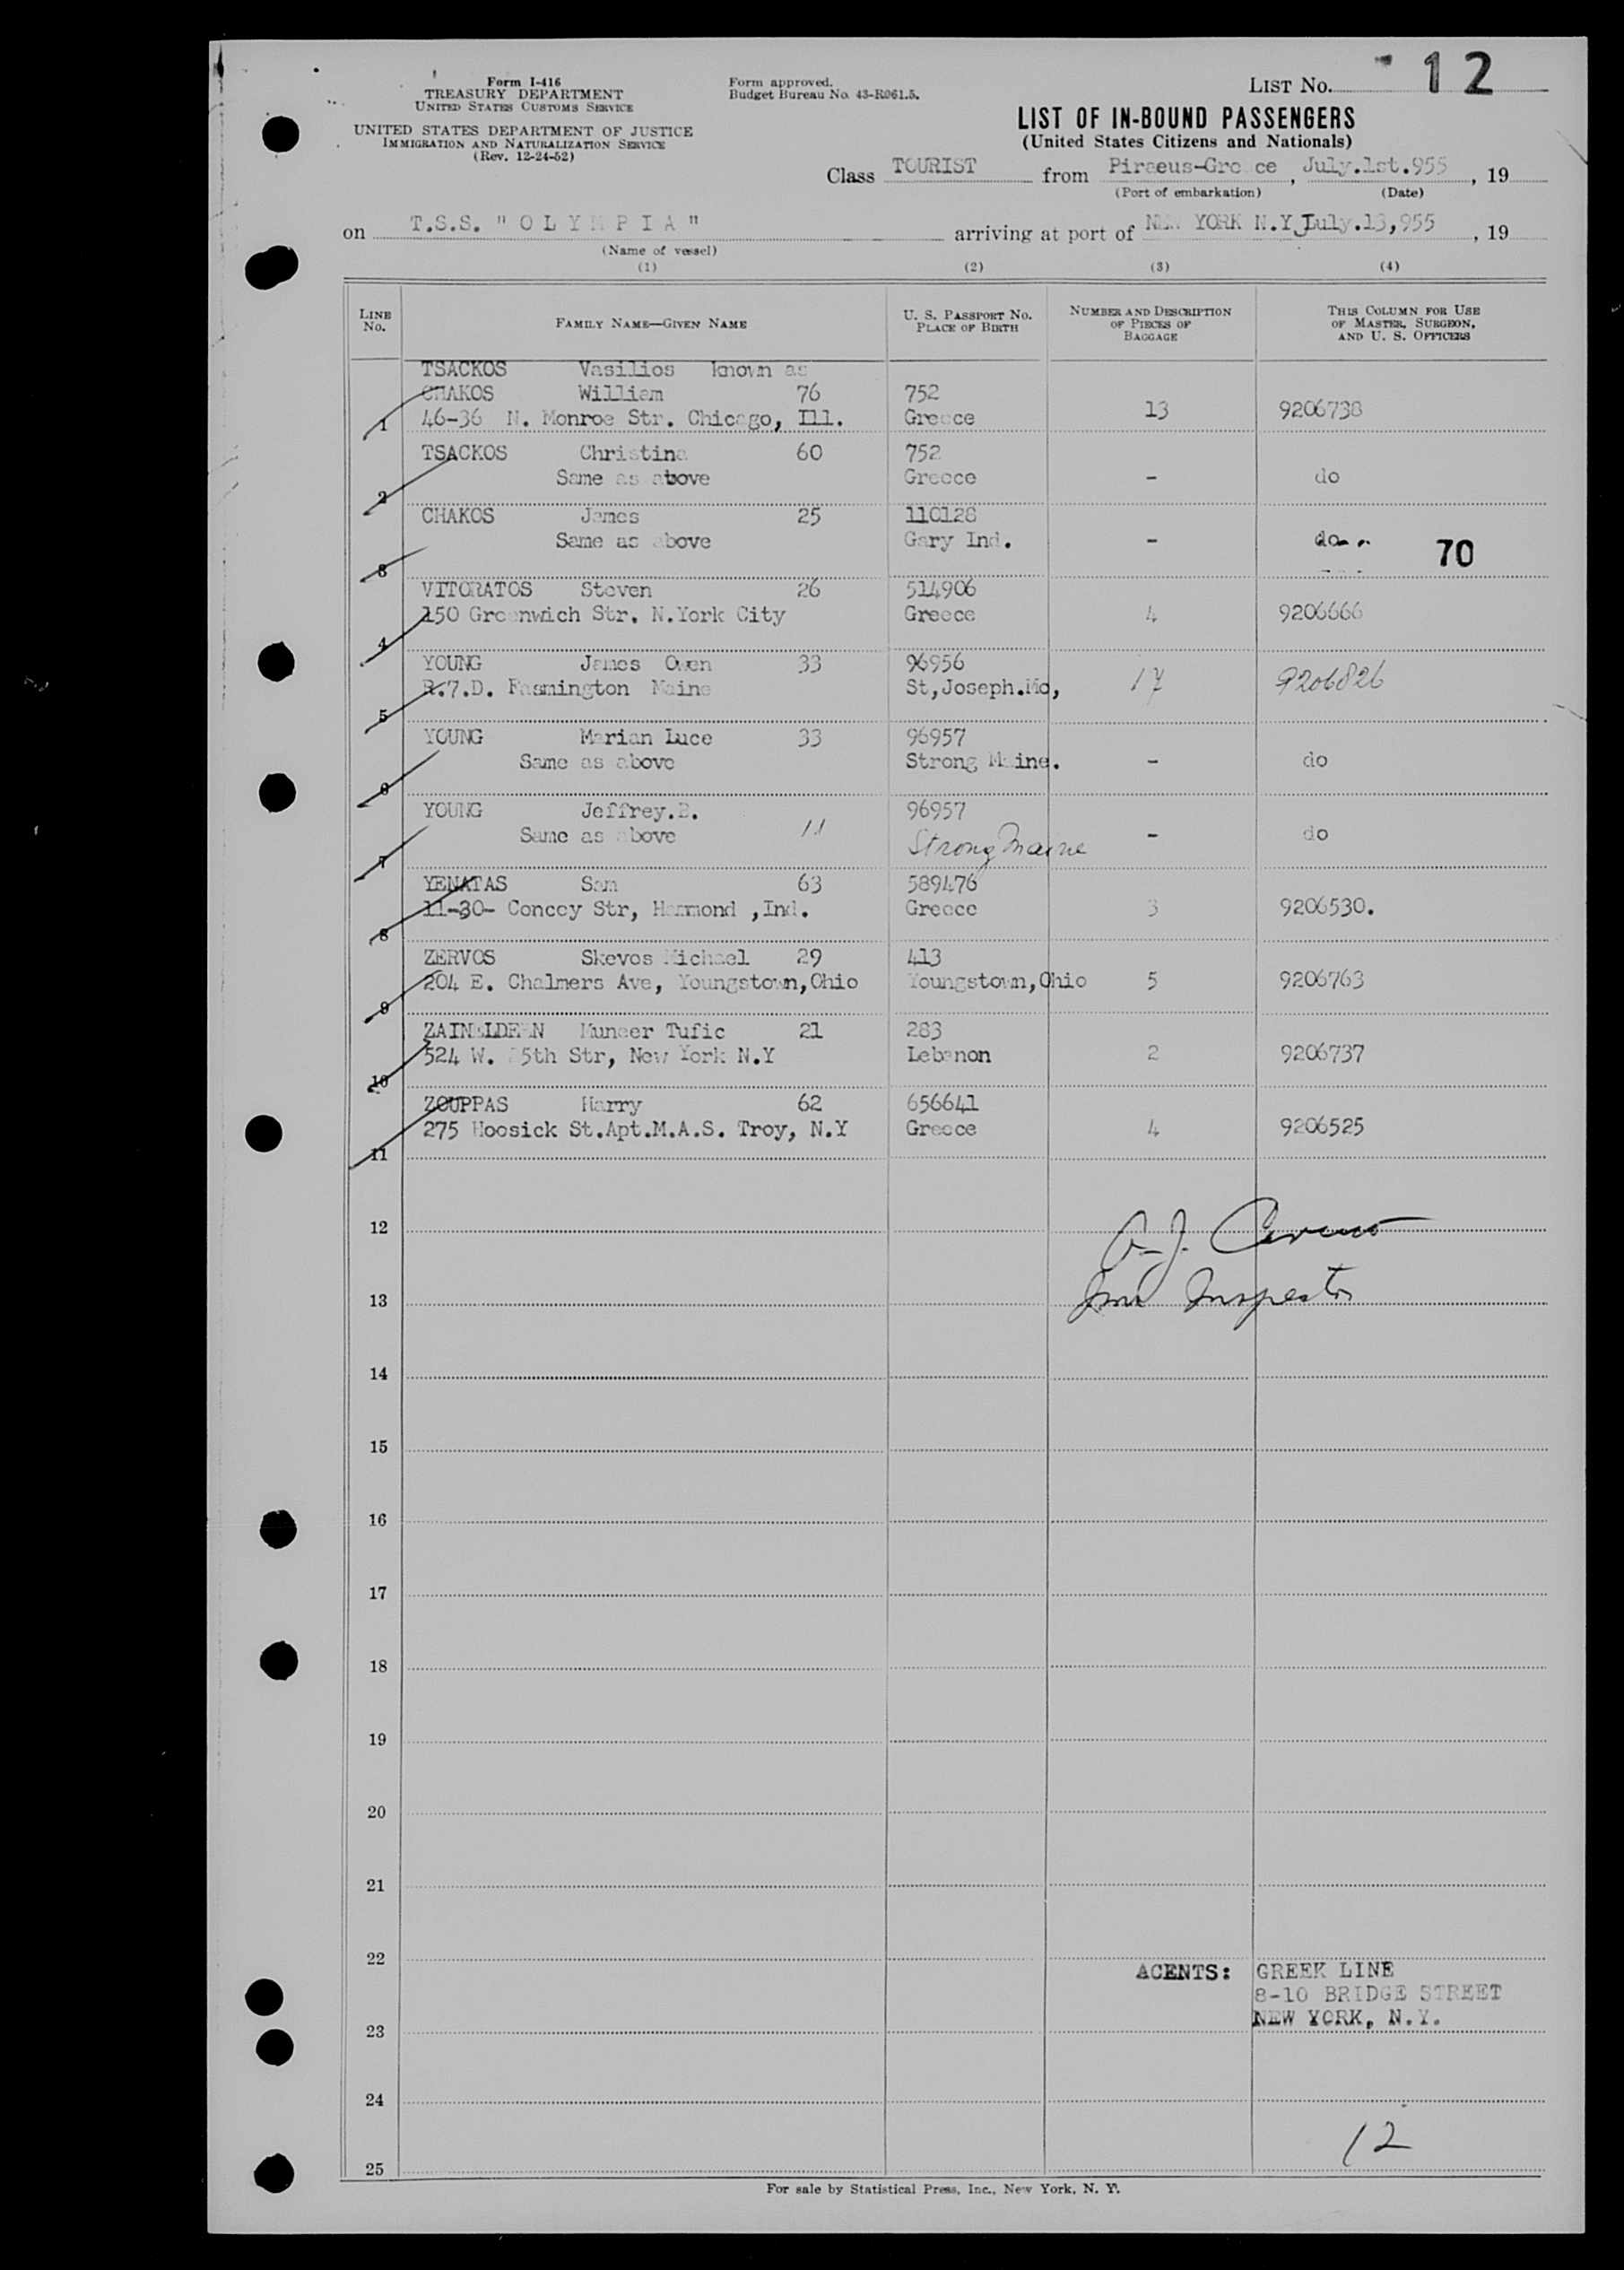 LIST No. 12
Form I-416
TREASURY DEPARTMENT
UNITED STATES CUSTOMS SERVICE
Form approved.
Budget Bureau No. 43-R061.5.
UNITED STATES DEPARTMENT OF JUSTICE
IMMIGRATION AND NATURALIZATION SERVICE
(Rev. 12-24-52)
LIST OF IN-BOUND PASSENGERS
(United States Citizens and Nationals)
Class TOURIST from Piraeus-Greece, July.1st.955, 19
(Port of embarkation) (Date)
on T.S.S. "OLYMPIA" arriving at port of NEW YORK N.Y July.13,955, 19
(Name of vessel)
(1) (2) (3) (4)
LINE No. FAMILY NAME—GIVEN NAME U. S. PASSPORT No. PLACE OF BIRTH NUMBER AND DESCRIPTION OF PIECES OF BAGGAGE THIS COLUMN FOR USE OF MASTER, SURGEON, AND U. S. OFFICERS
TSACKOS Vasilios known as
CHAKOS William 76 752
1 46-36 N. Monroe Str. Chicago, Ill. Greece 13 9206738
TSACKOS Christina 60 752
2 Same as above Greece - do
CHAKOS James 25 110128
3 Same as above Gary Ind. - do 70
VITORATOS Steven 26 514906
4 150 Greenwich Str. N.York City Greece 4 9206666
YOUNG James Owen 33 96956
5 R.7.D. Fasmington Maine St,Joseph.Mo, 17 9206826
YOUNG Marian Luce 33 96957
6 Same as above Strong Maine. - do
YOUNG Jeffrey.B. 11 96957
7 Same as above Strong Maine - do
YENATAS Sam 63 589476
8 11-30- Concey Str, Hammond ,Ind. Greece 3 9206530.
ZERVOS Skevos Michael 29 413
9 204 E. Chalmers Ave, Youngstown,Ohio Youngstown,Ohio 5 9206763
ZAINALDEEN Muneer Tufic 21 283
10 524 W. 5th Str, New York N.Y Lebanon 2 9206737
ZOUPPAS Harry 62 656641
11 275 Hoosick St.Apt.M.A.S. Troy, N.Y Greece 4 9206525
12
13 Imm Inspector
14
15
16
17
18
19
20
21
22
AGENTS: GREEK LINE
8-10 BRIDGE STREET
NEW YORK, N.Y.
23
24
12
25
For sale by Statistical Press, Inc., New York, N. Y.